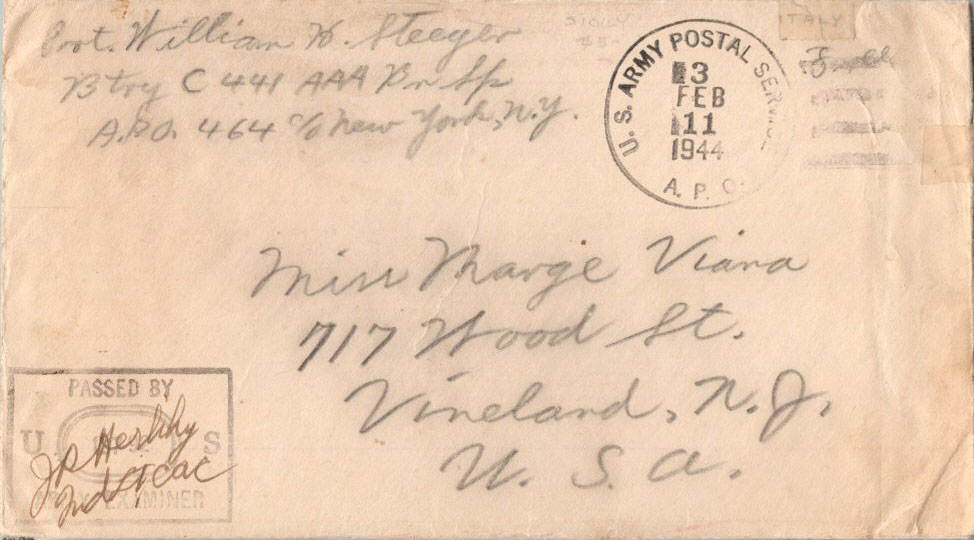 William H. Steeger
Btry C 441 AAA Bn Sp
A.P.O. 464 c/o New York, N.Y.
SICILY
ITALY
U. S. ARMY POSTAL SERVICE
3
FEB
11
1944
A. P. O.
Miss Marge Viana
717 Wood St.
Vineland, N.J.
U. S. A.
PASSED BY
U S
EXAMINER